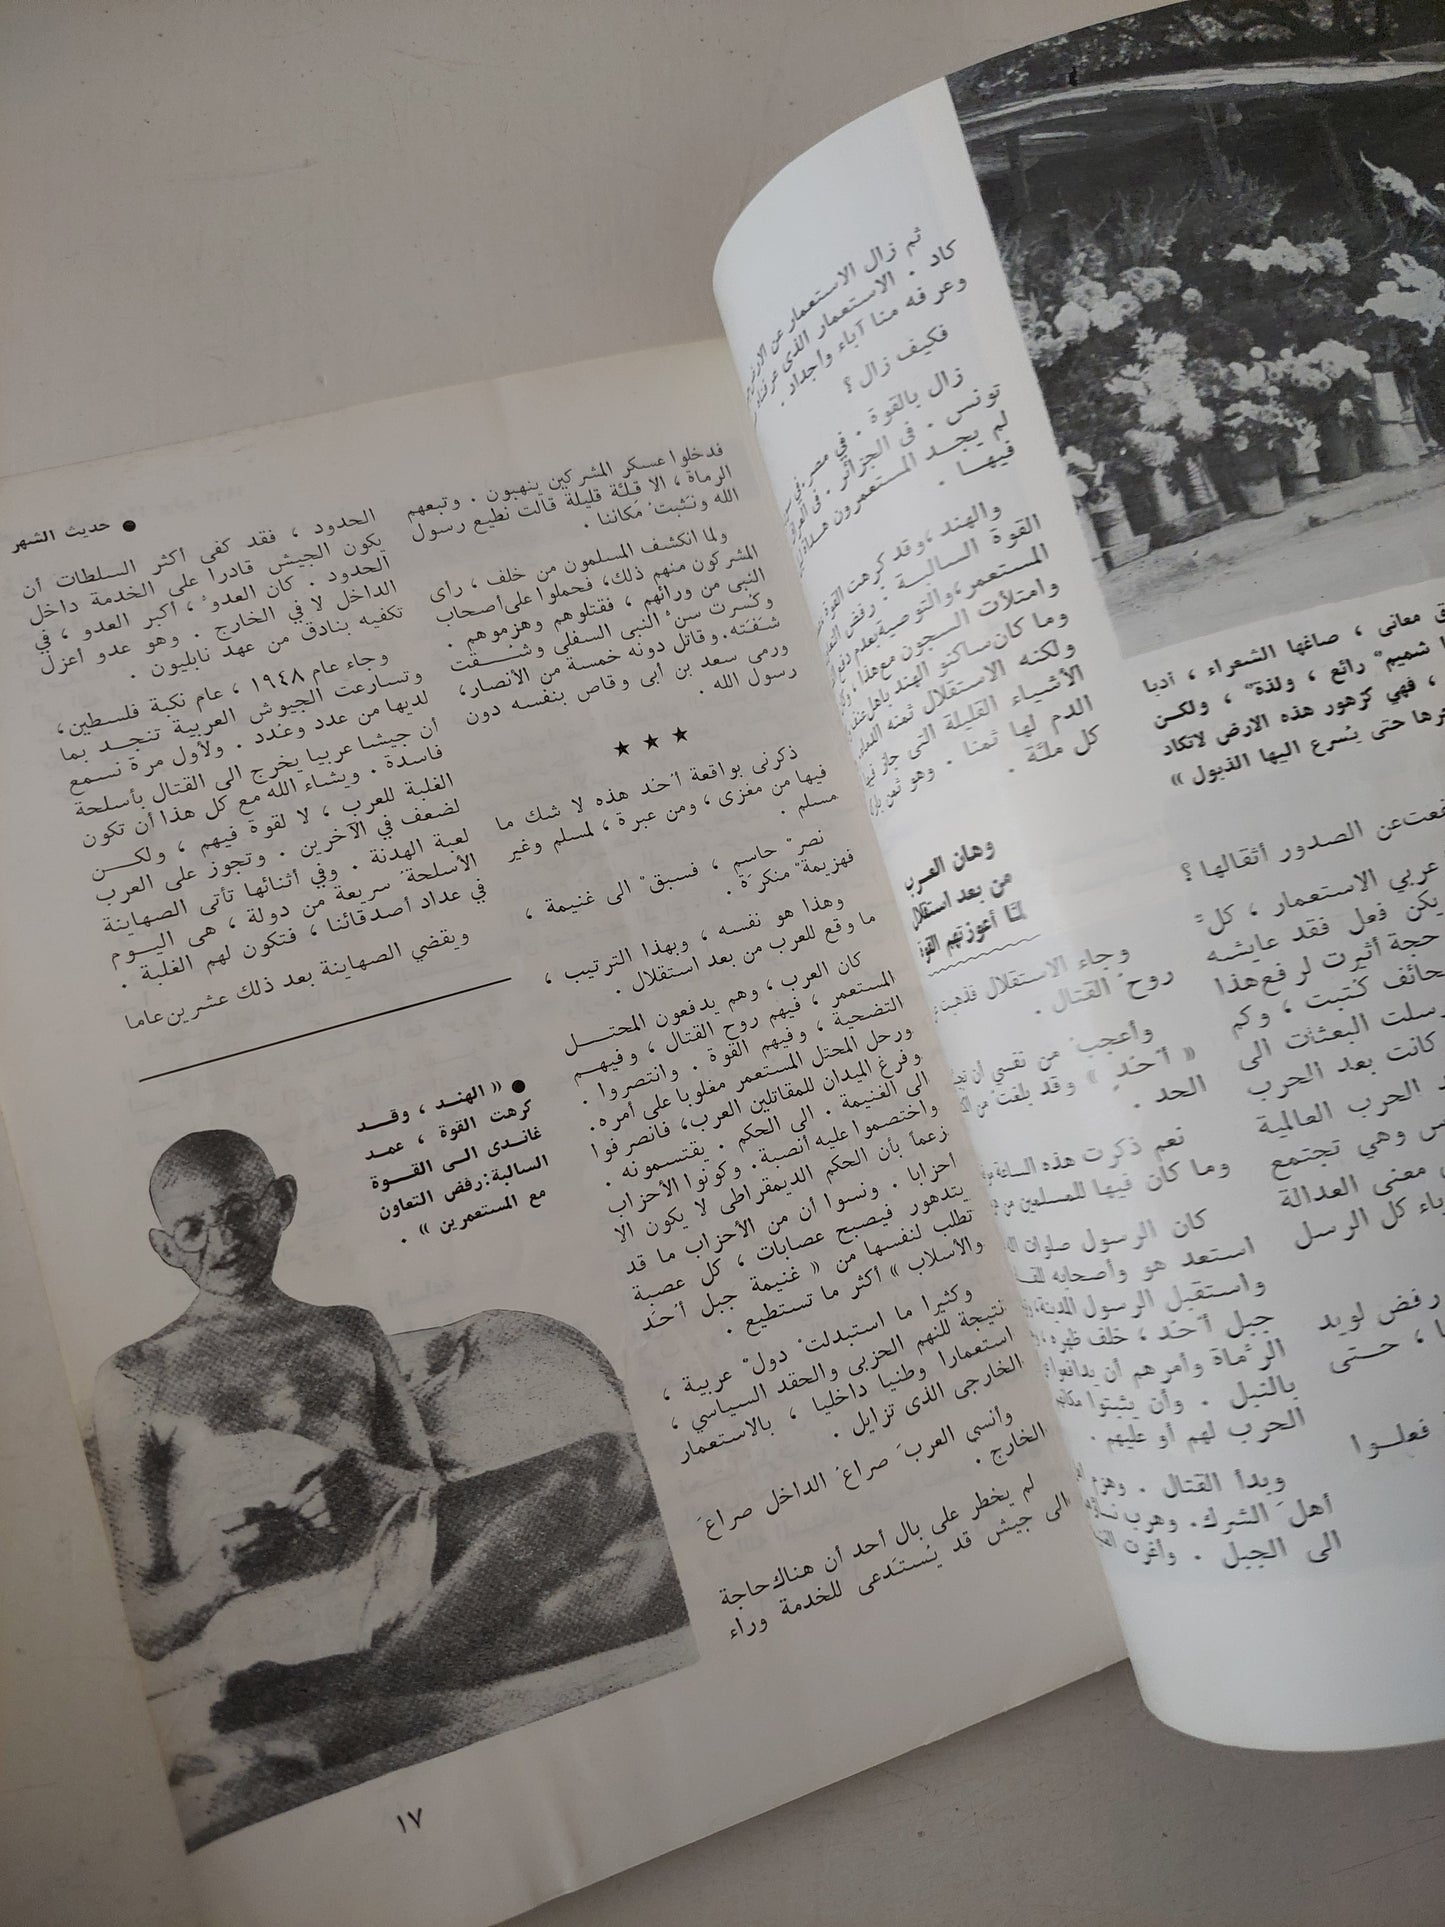 ثم زال الاستعمار عن الارض
كاد . الاستعمار الذى عرفناه
وعرفه منا آباء وأجداد .
فكيف زال ؟
زال بالقوة . في مصر .
تونس . في الجزائر . في العراق
لم يجد المستعمرون
فيها .
والهند ، وقد كرهت القوة
القوة السالبة : رفض
المستعمر، والتوصية بعدم
وامتلأت السجون مع هذا
وما كان ساكنو الهند بأهل
ولكنه الاستقلال ثمنه
الأشياء القليلة التى جاز
الدم لها ثمنا . وهو ثمن
كل ملة .
وهان العرب
من بعد استقلال
لمّا أعوزتهم القوة
وجاء الاستقلال فذهبت
روح القتال .
وأعجب من نفسي أن
« أُحُد » وقد بلغت من
الحد .
نعم ذكرت هذه الساعة
وما كان فيها للمسلمين من
كان الرسول صلوات
استعد هو وأصحابه
واستقبل الرسول المدينة،
جبل أُحُد ، خلف ظهره ،
الرُماة وأمرهم أن يدافعوا
بالنبل . وأن يثبتوا
الحرب لهم أو عليهم .
وبدأ القتال . وهزم
أهل الشرك. وهرب
الى الجبل . وأغرت
معانى ، صاغها الشعراء ، أدبا
شميم رائع ، ولذة ، ولكن
، فهي كزهور هذه الارض لاتكاد
حتى يُسرع اليها الذبول »
عن الصدور أثقالها ؟
عربي الاستعمار ، كل
يكن فعل فقد عايشه
حجة أثيرت لرفع هذا
كُتبت ، وكم
رسلت البعثات الى
كانت بعد الحرب
الحرب العالمية
وهي تجتمع
معنى العدالة
كل الرسل
رفض لويد
، حتى
فعلوا
● حديث الشهر
فدخلوا عسكر المشركين ينهبون . وتبعهم
الرماة ، الا قلئة قليلة قالت نطيع رسول
الله ونثبت مكاننا .
ولما انكشف المسلمون من خلف ، رأى
المشركون منهم ذلك، فحملوا على أصحاب
النبى من ورائهم ، فقتلوهم وهزموهم .
وكسرت سن النبى السفلى وشُقت
شفته. وقاتل دونه خمسة من الأنصار،
ورمى سعد بن أبى وقاص بنفسه دون
رسول الله .
★ ★ ★
ذكرنى بواقعة أحُد هذه لا شك ما
فيها من مغزى ، ومن عبرة ، لمسلم وغير
مسلم .
نصر حاسم ، فسبق الى غنيمة ،
فهزيمة منكرة .
وهذا هو نفسه ، وبهذا الترتيب ،
ما وقع للعرب من بعد استقلال .
كان العرب ، وهم يدفعون المحتل
المستعمر ، فيهم روح القتال ، وفيهم
التضحية ، وفيهم القوة . وانتصروا .
ورحل المحتل المستعمر مغلوبا على أمره.
وفرغ الميدان للمقاتلين العرب، فانصرفوا
الى الغنيمة . الى الحكم . يقتسمونه .
واختصموا عليه أنصبة. وكونوا الأحزاب
زعماً بأن الحكم الديمقراطى لا يكون الا
أحزابا . ونسوا أن من الأحزاب ما قد
يتدهور فيصبح عصابات ، كل عصبة
تطلب لنفسها من « غنيمة جبل أُحُد
والأسلاب » أكثر ما تستطيع .
وكثيرا ما استبدلت دول عربية ،
نتيجة للنهم الحزبى والحقد السياسي ،
استعمارا وطنيا داخليا ، بالاستعمار
الخارجى الذى تزايل .
وأنسى العرب صراع الداخل صراع
الخارج .
لم يخطر على بال أحد أن هناك حاجة
الى جيش قد يُستدعى للخدمة وراء
الحدود ، فقد كفى أكثر السلطات أن
يكون الجيش قادرا على الخدمة داخل
الحدود . كان العدو ، أكبر العدو ، في
الداخل لا في الخارج . وهو عدو أعزل
تكفيه بنادق من عهد نابليون .
وجاء عام ١٩٤٨ ، عام نكبة فلسطين،
وتسارعت الجيوش العربية تنجد بما
لديها من عدد وعُدد . ولأول مرة نسمع
أن جيشا عربيا يخرج الى القتال بأسلحة
فاسدة . ويشاء الله مع كل هذا أن تكون
الغلبة للعرب ، لا لقوة فيهم ، ولكن
لضعف في الآخرين . وتجوز على العرب
لعبة الهدنة . وفي أثنائها تأتى الصهاينة
الأسلحة سريعة من دولة ، هى اليوم
في عداد أصدقائنا ، فتكون لهم الغلبة .
ويقضي الصهاينة بعد ذلك عشرين عاما
● « الهند ، وقد
كرهت القوة ، عمد
غاندى الى القوة
السالبة: رفض التعاون
مع المستعمرين » .
١٧